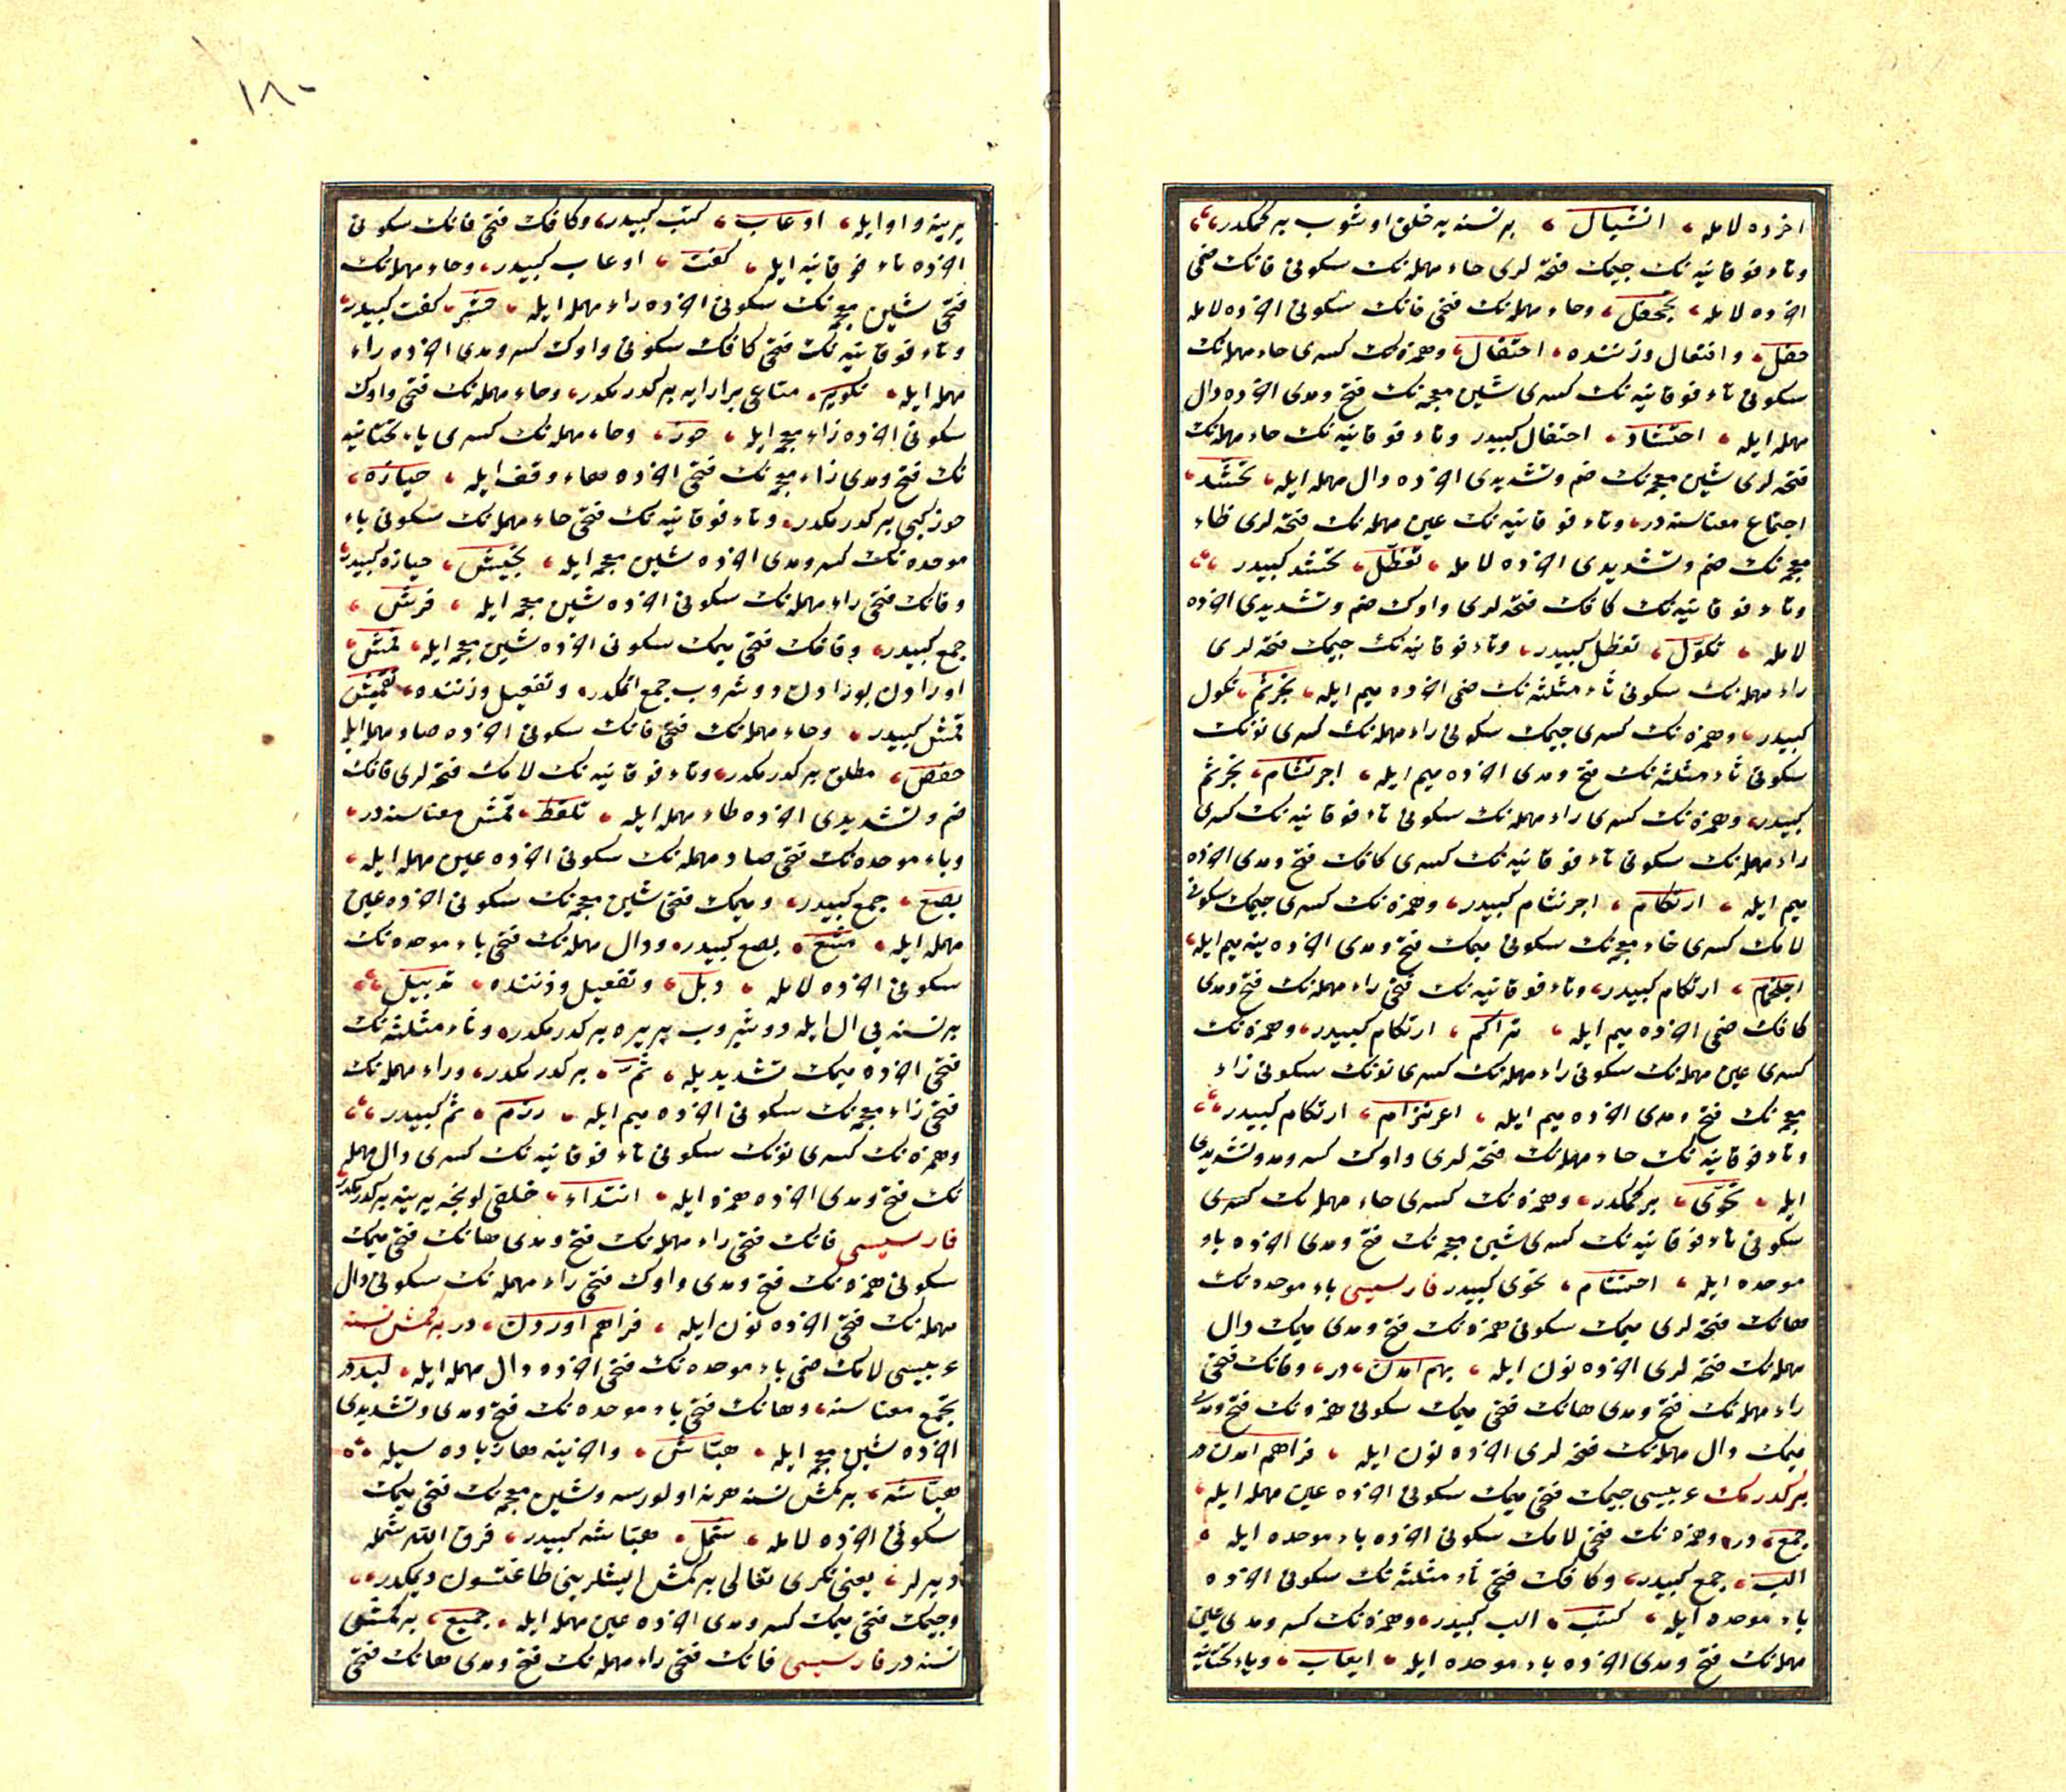 اخرده لامله، انثيال، برنسنه‌يه خلق اوشوب بركمكدر،
وتاء فوقانيه‌نك جيمك فتحه‌لرى حاء مهمله‌نك سكونى فانك ضمى
اخرده لامله، تجحفل، وحاء مهمله‌نك فتحى فانك سكونى اخرده لامله
حفل، وافتعال وزننده، احتفال، وهمزه‌نك كسرى حاء مهمله‌نك
سكونى تاء فوقانيه‌نك كسرى شين معجمه‌نك فتح ومدى اخرده دال
مهمله ايله، احتشاد، احتفال كبيدر وتاء فوقانيه‌نك حاء مهمله‌نك
فتحه‌لرى شين معجمه‌نك ضم وتشديدى اخرده دال مهمله ايله، تحشّد،
اجتماع معناسنه در، وتاء فوقانيه‌نك عين مهمله‌نك فتحه‌لرى ظاء
معجمه‌نك ضم وتشديدى اخرده لامله، تعظّل، تحشد كبيدر،
وتاء فوقانيه‌نك كافك فتحه‌لرى واوك ضم وتشديدى اخرده
لامله، تكوّل، تعظل كبيدر، وتاء فوقانيه‌نك جيمك فتحه‌لرى
راء مهمله‌نك سكونى ثاء مثلثه‌نك ضمى اخرده ميم ايله، تجرثم، تكول
كبيدر، وهمزه‌نك كسرى جيمك سكونى راء مهمله‌نك كسرى نونك
سكونى ثاء مثلثه‌نك فتح ومدى اخرده ميم ايله، اجرنثام، تجرثم
كبيدر، وهمزه‌نك كسرى راء مهمله‌نك سكونى تاء فوقانيه‌نك كسرى
راء مهمله‌نك سكونى تاء فوقانيه‌نك كسرى كافك فتح ومدى اخرده
ميم ايله، ارتكام، اجرنثام كبيدر، وهمزه‌نك كسرى جيمك سكونى
لامك كسرى خاء معجمه‌نك سكونى ميمك فتح ومدى اخرده ينه ميم ايله،
اجلخمام، ارتكام كبيدر، وتاء فوقانيه‌نك فتحى راء مهمله‌نك فتح ومدى
كافك ضمى اخرده ميم ايله، تراكم، ارتكام كبيدر، وهمزه‌نك
كسرى عين مهمله‌نك سكونى راء مهمله‌نك كسرى نونك سكونى زاء
معجمه‌نك فتح ومدى اخرده ميم ايله، اعرنزام، ارتكام كبيدر،
وتاء فوقانيه‌نك حاء مهمله‌نك فتحه‌لرى واوك كسر ومد وتشديدى
ايله، تحوّى، بركمكدر، وهمزه‌نك كسرى حاء مهمله‌نك كسرى
سكونى تاء فوقانيه‌نك كسرى شين معجمه‌نك فتح ومدى اخرده باء
موحده ايله، احتشام، تحوى كبيدر فارسيسى باء موحده‌نك
هانك فتحه‌لرى ميمك سكونى همزه‌نك فتح ومدى ميمك دال
مهمله‌نك فتحه‌لرى اخرده نون ايله، بهم آمدن، در، وفانك فتحى
راء مهمله‌نك فتح ومدى هانك فتحى ميمك سكونى همزه‌نك فتح ومدى
ميمك دال مهمله‌نك فتحه‌لرى اخرده نون ايله، فراهم آمدن در
بركدرمك عربيسى جيمك فتحى ميمك سكونى اخرده عين مهمله ايله،
جمع، در، وهمزه‌نك فتحى لامك سكونى اخرده باء موحده ايله،
الب، جمع كبيدر، وكافك فتحى ثاء مثلثه‌نك سكونى اخرده
باء موحده ايله، كثب، الب كبيدر، وهمزه‌نك كسر ومدى عين
مهمله‌نك فتح ومدى اخرده باء موحده ايله، ايعاب، وياء تحتانيه
١٨٠
يرينه واو ايله، اوعاب، كثب كبيدر، وكافك فتحى فانك سكونى
اخرده تاء فوقانيه ايله، كفت، اوعاب كبيدر، وحاء مهمله‌نك
فتحى شين معجمه‌نك سكونى اخرده راء مهمله ايله، حشر، كفت كبيدر،
وتاء فوقانيه‌نك فتحى كافك سكونى واوك كسر ومدى اخرده راء
مهمله ايله، تكوير، متاعى برارايه بركدرمكدر، وحاء مهمله‌نك فتحى واوك
سكونى اخرده زاء معجمه ايله، حوز، وحاء مهمله‌نك كسرى ياء تحتانيه
نك فتح ومدى زاء معجمه‌نك فتحى اخرده هاء وقف ايله، حيازه،
حوز كبى بركدرمكدر، وتاء فوقانيه‌نك فتحى حاء مهمله‌نك سكونى باء
موحده‌نك كسر ومدى اخرده شين معجمه ايله، تحبيش، حيازه كبيدر،
وفانك فتحى راء مهمله‌نك سكونى اخرده شين معجمه ايله، فرش،
جمع كبيدر، وقافك فتحى ميمك سكونى اخرده شين معجمه ايله، قمش،
اورادن بورادن دوشروب جمع اتمكدر، وتفعيل وزننده، تقميش
قمش كبيدر، وحاء مهمله‌نك فتحى فانك سكونى اخرده صاد مهمله ايله
حفص، مطلق بركدرمكدر، وتاء فوقانيه‌نك لامك فتحه‌لرى قافك
ضم وتشديدى اخرده طاء مهمله ايله، تلقط، قمش معناسنه در،
وباء موحده‌نك فتحى صاد مهمله‌نك سكونى اخرده عين مهمله ايله،
بصع، جمع كبيدر، وميمك فتحى شين معجمه‌نك سكونى اخرده عين
مهمله ايله، مشع، بصع كبيدر، ودال مهمله‌نك فتحى باء موحده‌نك
سكونى اخرده لامله، دبل، وتفعيل وزننده، تدبيل،
برنسنه‌يى ال ايله دوشيروب بر يره بركدرمكدر، وثاء مثلثه‌نك
فتحى اخرده ميمك تشديديله، ثمّ، بركدرمكدر، وراء مهمله‌نك
فتحى زاء معجمه‌نك سكونى اخرده ميم ايله، رزم، ثم كبيدر،
وهمزه‌نك كسرى نونك سكونى تاء فوقانيه‌نك كسرى دال مهمله
نك فتح ومدى اخرده همزه ايله، انتداء، خلقى يرينه بركدرمكدر
فارسيسى فانك فتحى راء مهمله‌نك فتح ومدى هانك فتحى ميمك
سكونى همزه‌نك فتح ومدى واوك فتحى راء مهمله‌نك سكونى دال
مهمله‌نك فتحى اخرده نون ايله، فراهم آوردن، در بركمش نسنه
عربيسى لامك ضمى باء موحده‌نك فتحى اخرده دال مهمله ايله، لبد در
تجمع معناسنه، وهانك فتحى باء موحده‌نك فتح ومدى وتشديدى
اخرده شين معجمه ايله، هبّاش، واخرينه هاء زياده سيله
هبّاشه، بركمش نسنه هرنه اولورسه وشين معجمه‌نك فتحى ميمك
سكونى اخرده لامله، شمل، هبّاشه كبيدر، فرق الله شمله
ديرلر، يعنى تكرى تعالى بركمش ايشلرينى طاغتسون ديمكدر،
وجيمك فتحى ميمك كسر ومدى اخرده عين مهمله ايله، جميع، بركمش
نسنه در فارسيسى فانك فتحى راء مهمله‌نك فتح ومدى هانك فتحى